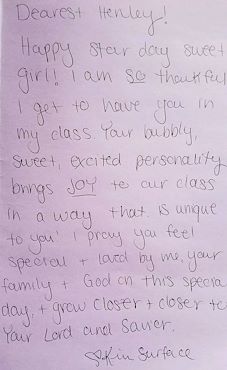 Dearest Henley!
Happy star day sweet
girl! I am so thankful
I get to have you in
my class. Your bubbly,
sweet, excited personality
brings JOY to our class
in a way that is unique
to you! I pray you feel
special + loved by me, your
family + God on this special
day, + grow closer + closer to
Your Lord and Savior.
Kin Surface